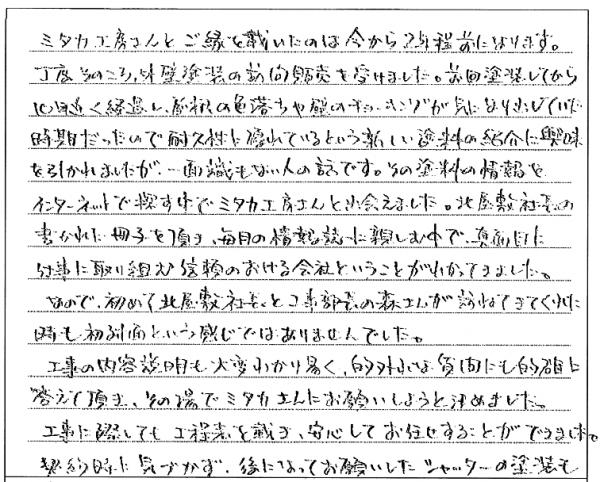 ミタカ工房さんとご縁を戴いたのは今から2年程前になります。
丁度そのころ、外壁塗装の訪問販売を受けました。前回塗装してから
10年近く経過し、屋根の色落ちや壁のチョーキングが気になり出していた
時期だったので耐久性に優れているという新しい塗料の紹介に興味
を引かれましたが、一面識もない人の話です。その塗料の情報を
インターネットで探す中でミタカ工房さんと出会えました。北屋敷社長の
書かれた冊子を頂き、毎月の情報誌に親しむ中で、真面目に
仕事に取り組む信頼のおける会社ということがわかってきました。
なので、初めて北屋敷社長と工事部長の森さんが訪ねてきてくれた
時も初対面という感じではありませんでした。
工事の内容説明も大変わかり易く、的外れな質問にも的確に
答えて頂き、その場でミタカさんにお願いしようと決めました。
工事に際しても工程表を戴き、安心してお任せすることができました。
契約時に気づかず、後になってお願いしたシャッターの塗装も